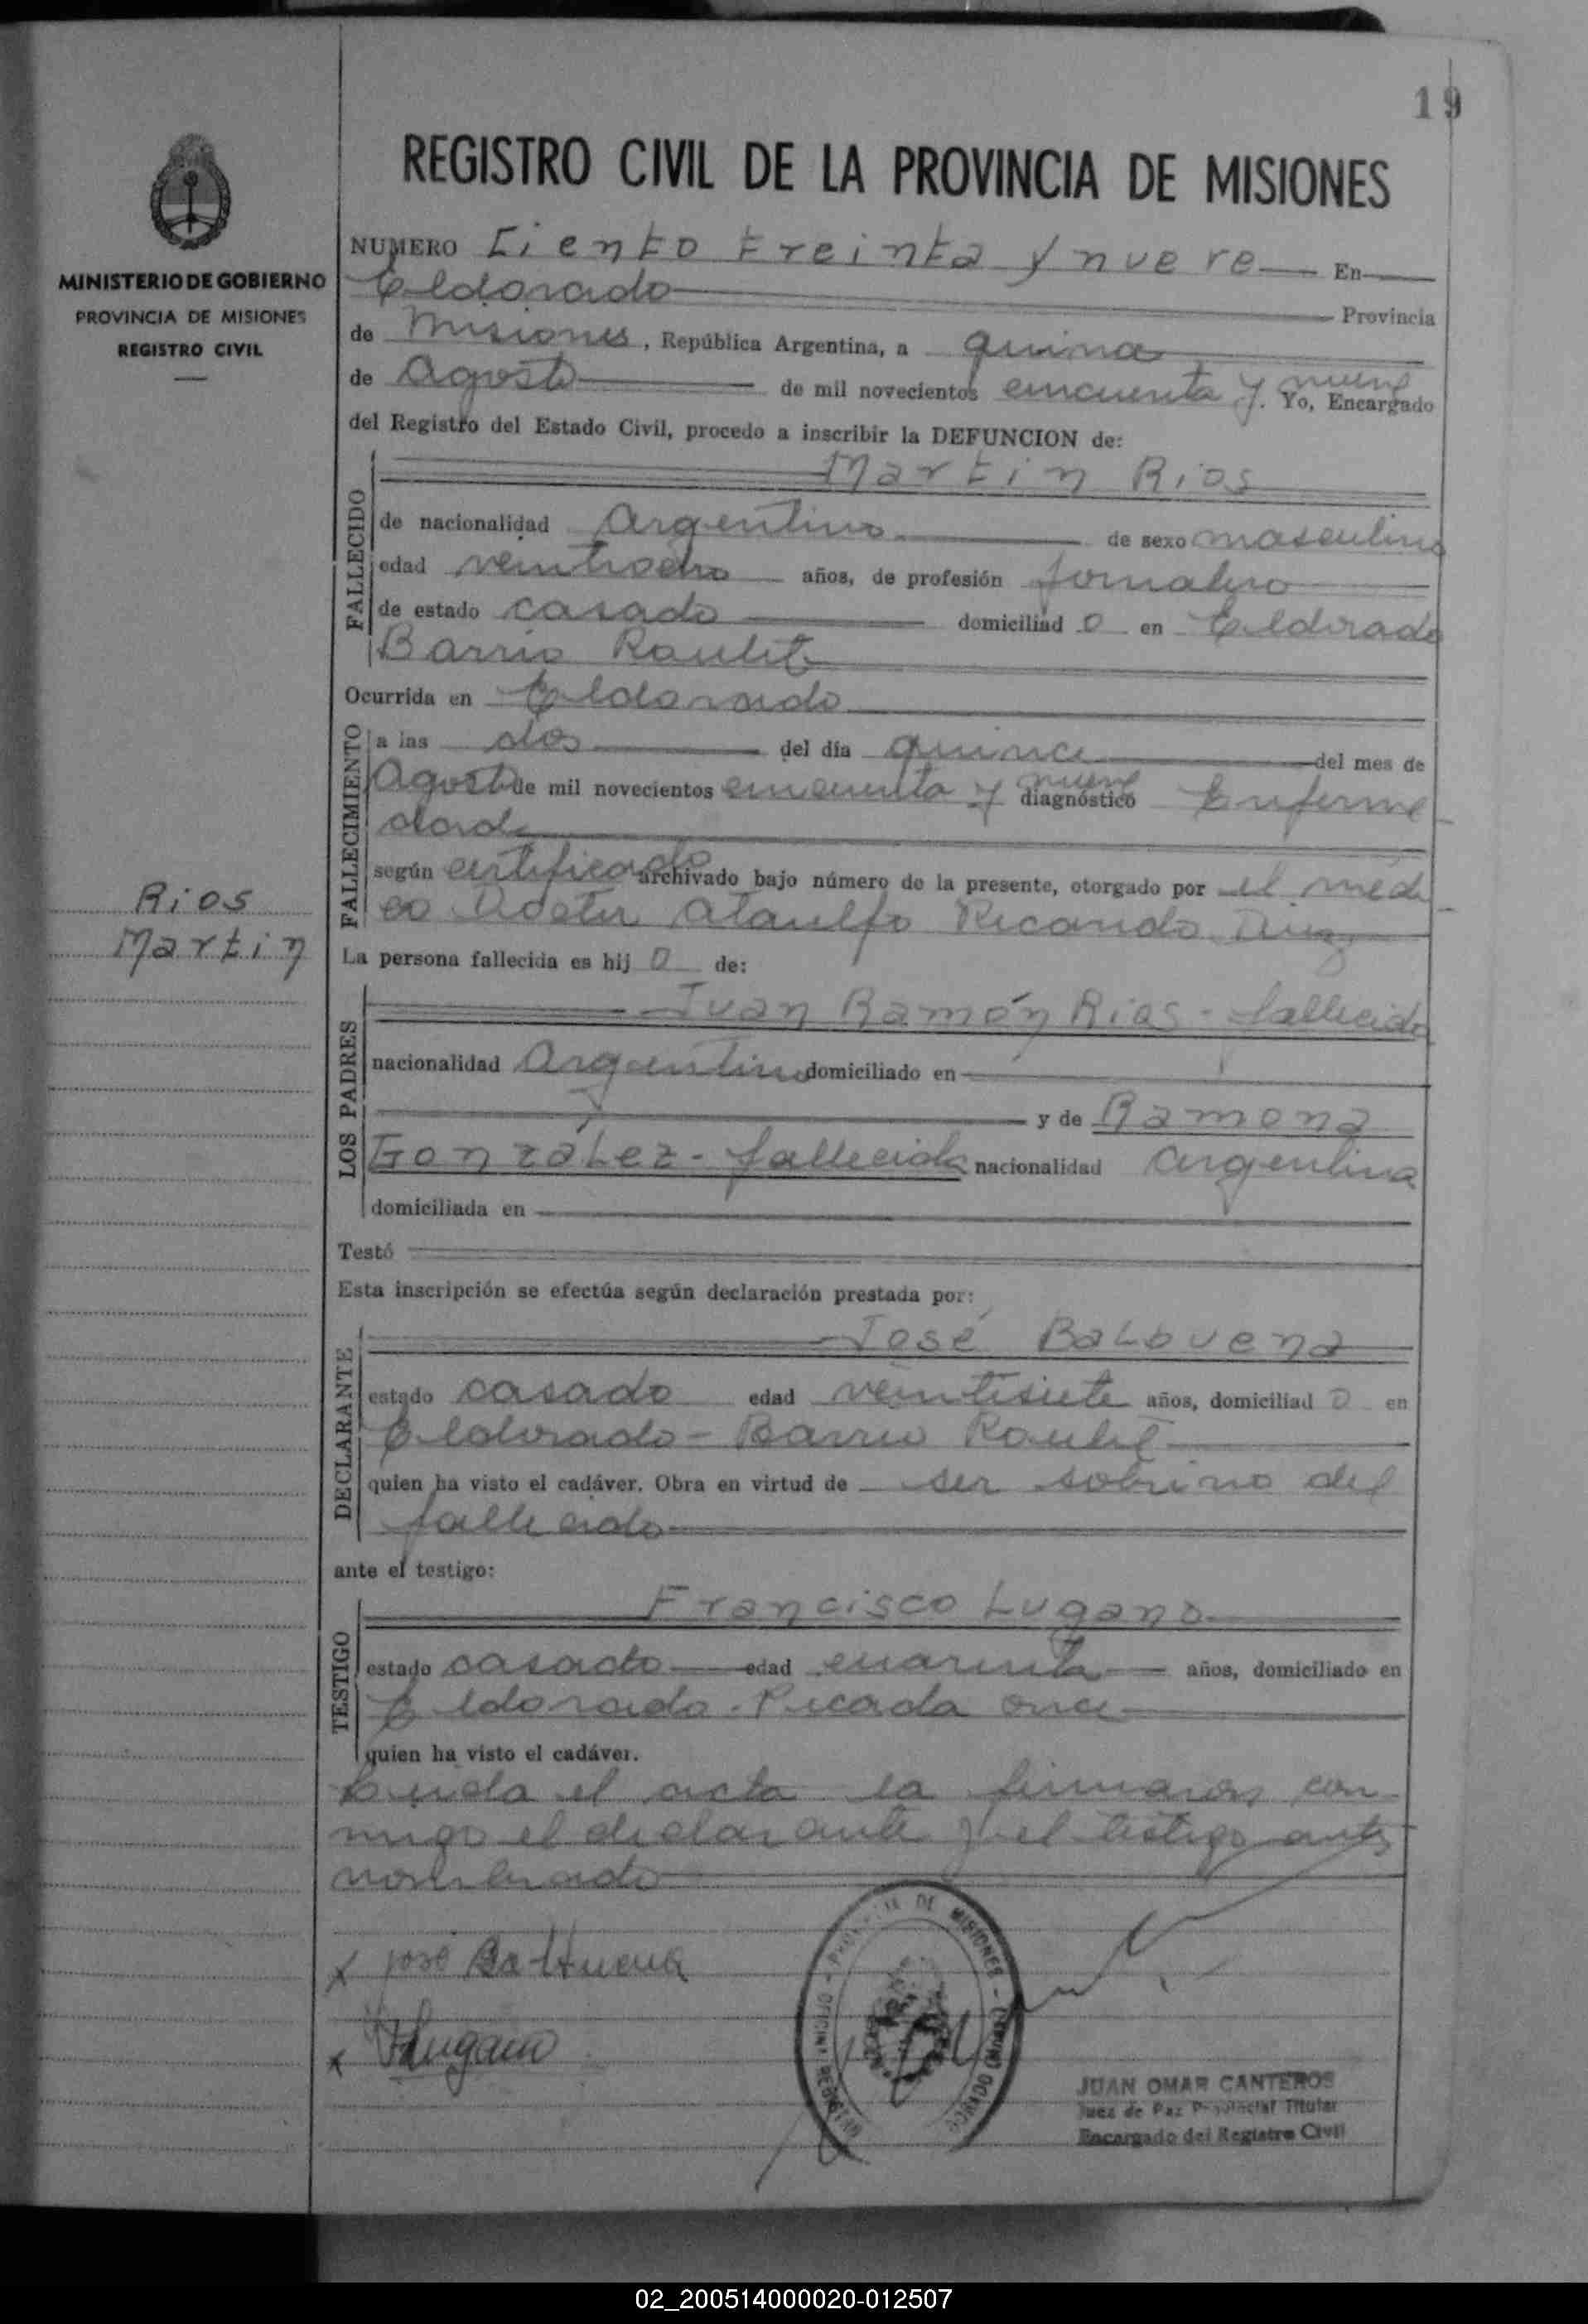 19
REGISTRO CIVIL DE LA PROVINCIA DE MISIONES
MINISTERIO DE GOBIERNO
PROVINCIA DE MISIONES
REGISTRO CIVIL
NUMERO Ciento treinta y nueve En
Eldorado Provincia
de Misiones, República Argentina, a quince
de Agosto de mil novecientos cincuenta y nueve. Yo, Encargado
del Registro del Estado Civil, procedo a inscribir la DEFUNCION de:
Martin Rios
FALLECIDO
de nacionalidad Argentino de sexo masculino
edad veintiocho años, de profesión Jornalero
de estado casado domiciliad o en Eldorado
Barrio Roulet
Ocurrida en Eldorado
FALLECIMIENTO
a las dos del día quince del mes de
Agosto de mil novecientos cincuenta y nueve diagnóstico Enferme
dad
según certificado archivado bajo número de la presente, otorgado por el médi
co Doctor Ataulfo Ricardo
Rios
Martin
La persona fallecida es hij o de:
LOS PADRES
Juan Ramón Rios - fallecido
nacionalidad Argentino domiciliado en
y de Ramona
González - fallecida nacionalidad argentina
domiciliada en
Testó
Esta inscripción se efectúa según declaración prestada por:
DECLARANTE
José Balbuena
estado casado edad veintisiete años, domiciliad o en
Eldorado - Barrio Roulet
quien ha visto el cadáver. Obra en virtud de ser sobrino del
fallecido
ante el testigo:
TESTIGO
Francisco Lugano
estado casado edad cuarenta años, domiciliado en
Eldorado - Picada once
quien ha visto el cadáver.
Leida el acta la firmaron con
migo el declarante y el testigo antes
nombrado
x José Balbuena
x FLugano
PROVINCIA DE MISIONES
JUAN OMAR CANTEROS
Juez de Paz Provincial Titular
Encargado del Registro Civil
02_200514000020-012507